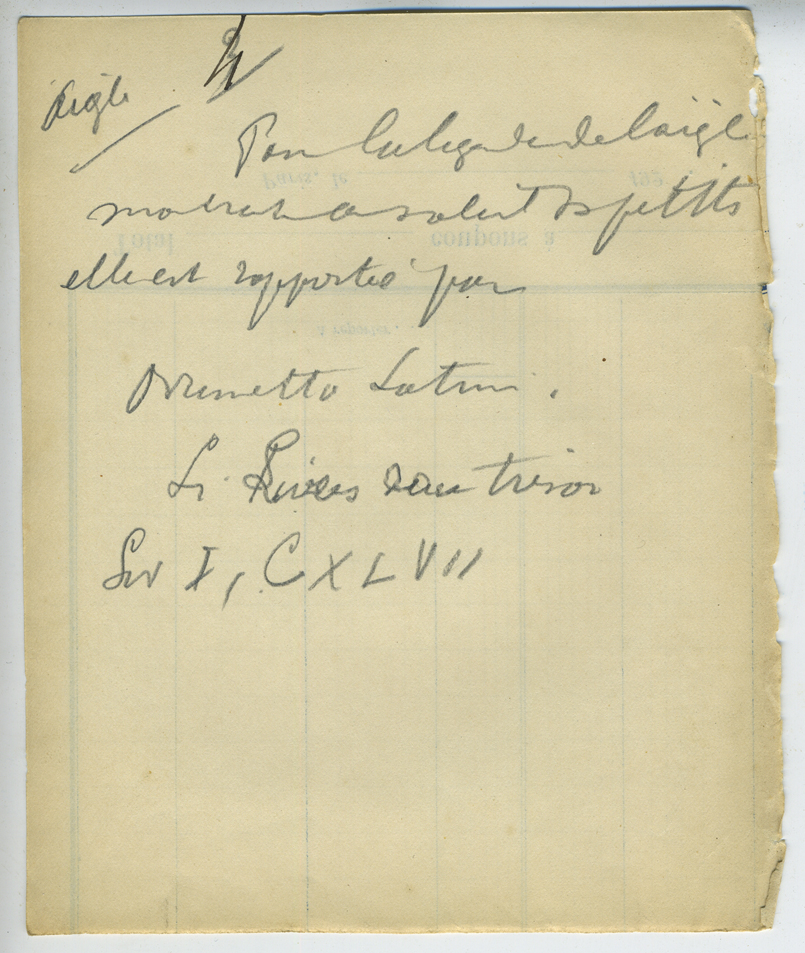 Aigle
Pour la legende de l'aigle
montrant au soleil ses petits
elle est rapportée par
Brunetto Latini.
Li Livres dou tresor
Liv I, CXLVII